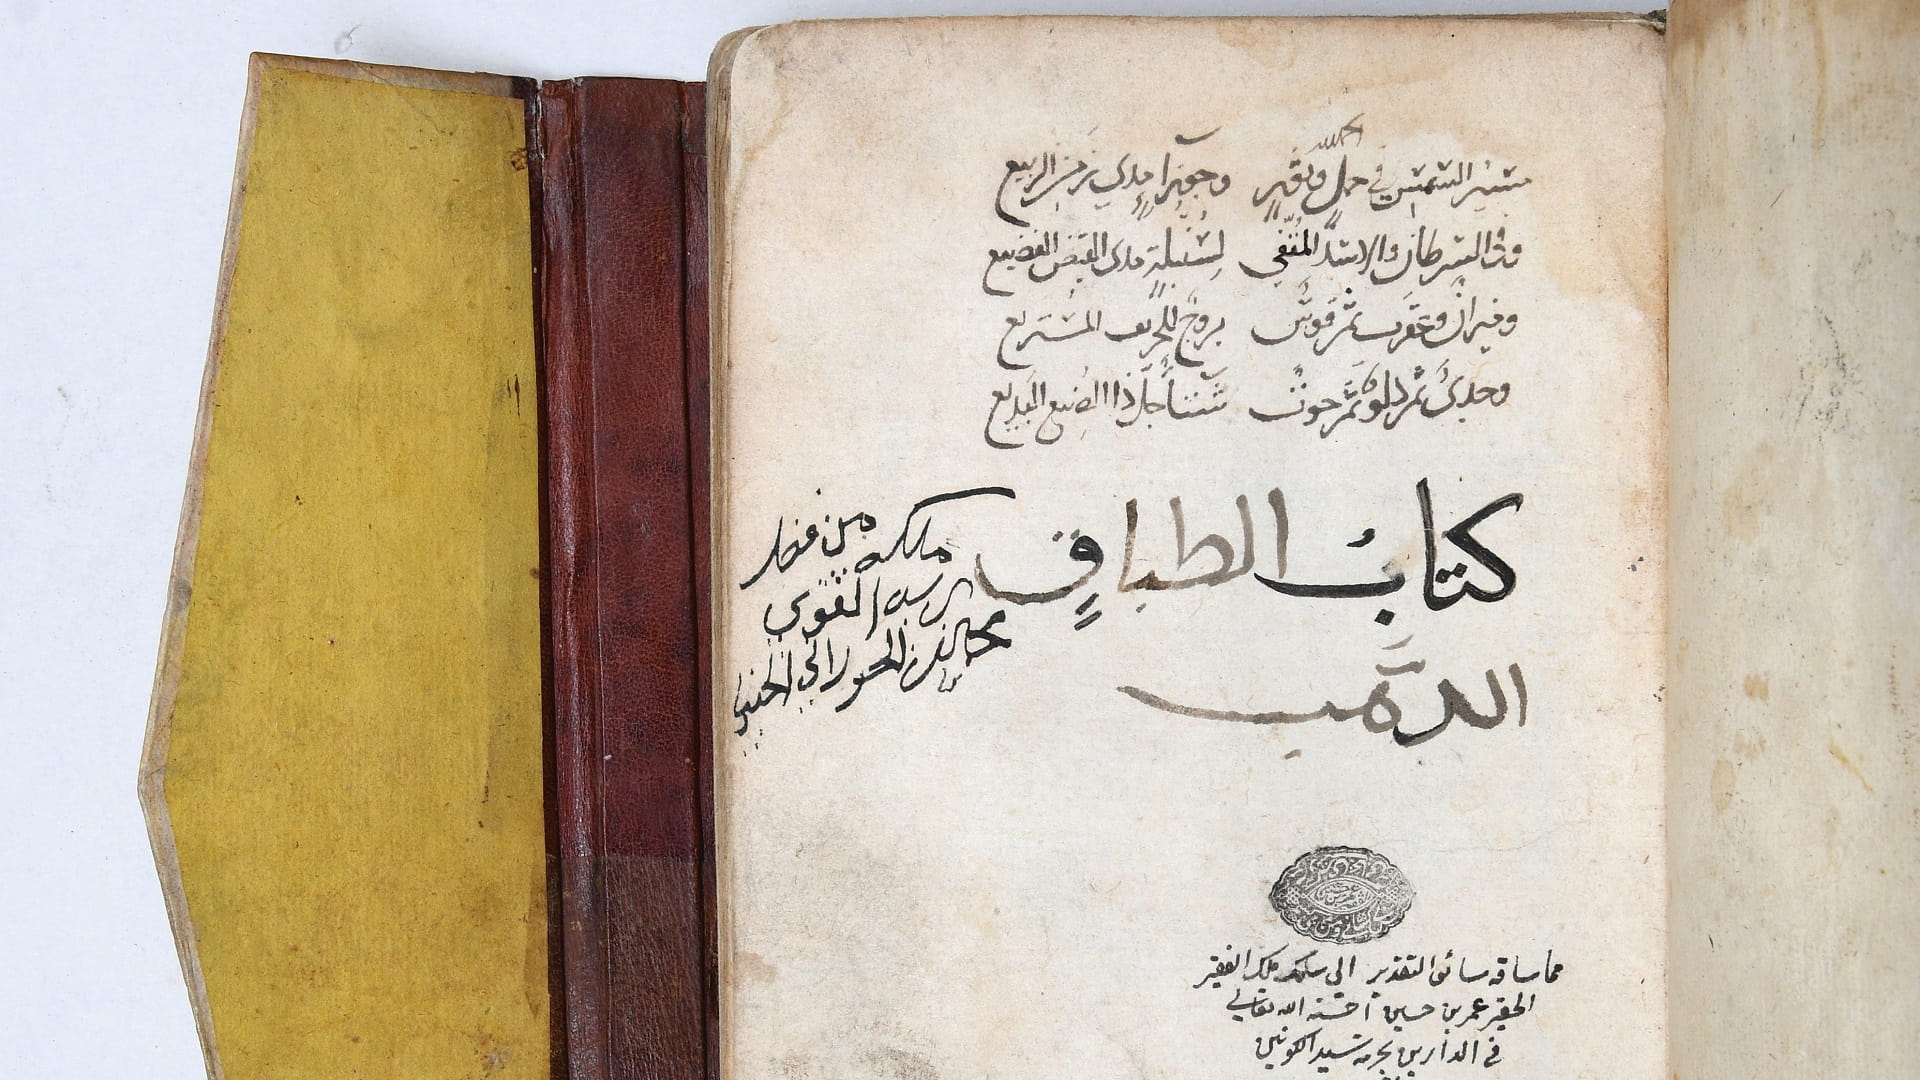 مسير الشمس في حمل وثور وجوزا مدي زمن الربيع
وفي السرطان والاسد المقفي لسنبلة مدى القيض الفضيع
وميزان وعقرب ثم قوس بروج للخريف المستريع
وجدي ثم دلو ثم حوت شتتا جل ذا الصنع البديع
كتاب الطباق
الذهب
ملكه من فضل
ربه القوي
الحوراني الحنبلي
مما ساقه سائق التقدير الى سلك ملك الفقير
الحقير عمر بن حسين احسنه الله تعالى
في الدارين بحرمة سيد الكونين